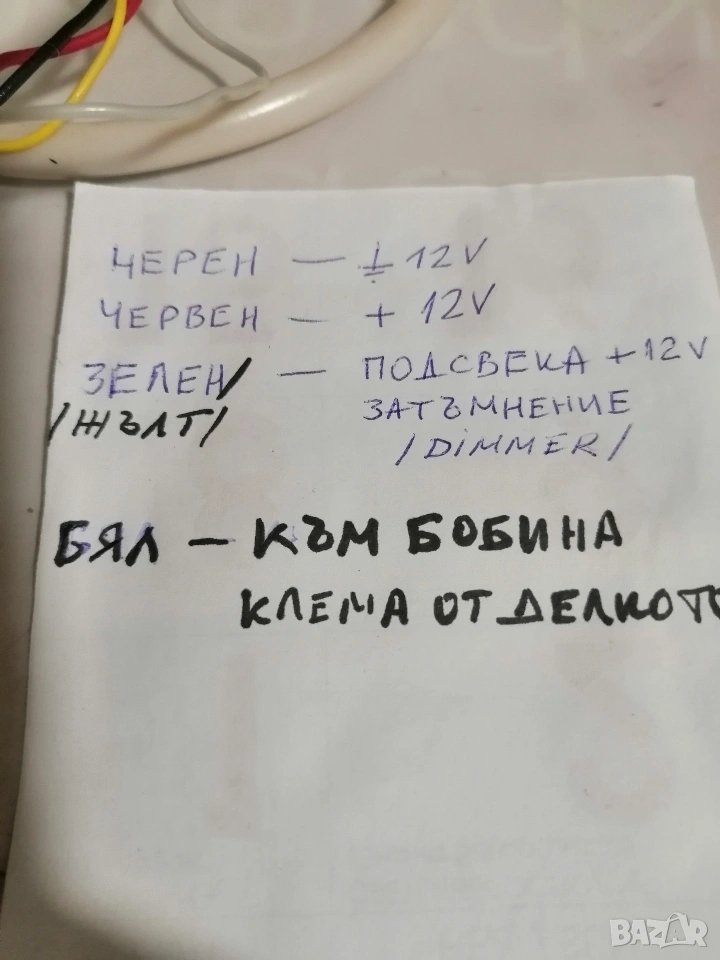 ЧЕРЕН — ⏚ 12V
ЧЕРВЕН — + 12V
ЗЕЛЕН/ — ПОДСВЕКА +12V
/ЖЪЛТ/ ЗАТЪМНЕНИЕ
/DIMMER/
БЯЛ — КЪМ БОБИНА
КЛЕМА ОТ ДЕЛКОТО
BAZAR